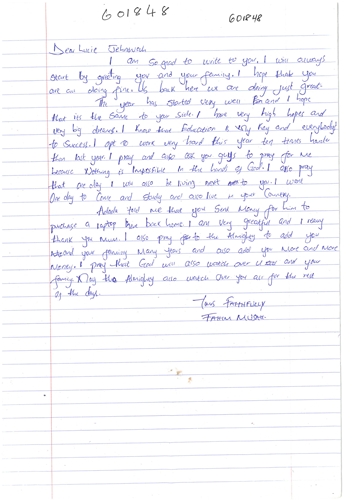 601848
601848
Dear Lucie
I am so good to write to you. I will always
start by greeting you and your family. I hope that you
are all doing fine. Us back here we are doing just great.
This year has started very well and I hope
that is the same to your side. I have very high hopes and
very big dreams. I know that Education is very key and everybody
to Success. I opt to work very hard this year ten times harder
than last year. I pray and also ask you guys to pray for me
because Nothing is Impossible in the hands of God. I also pray
that one day I will also be living next to you. I want
One day to Come and Study and also live in your Country.
told me that you Sent Money for him to
purchase a laptop back home. I am very greatful and I really
thank you Mum. I also pray for to the Almighty to add you
and your family Many years and also add you More and More
Money. I pray that God will also watch over you and your
family. May the Almighty also watch over you all for the rest
of the days.
Yours Faithfully